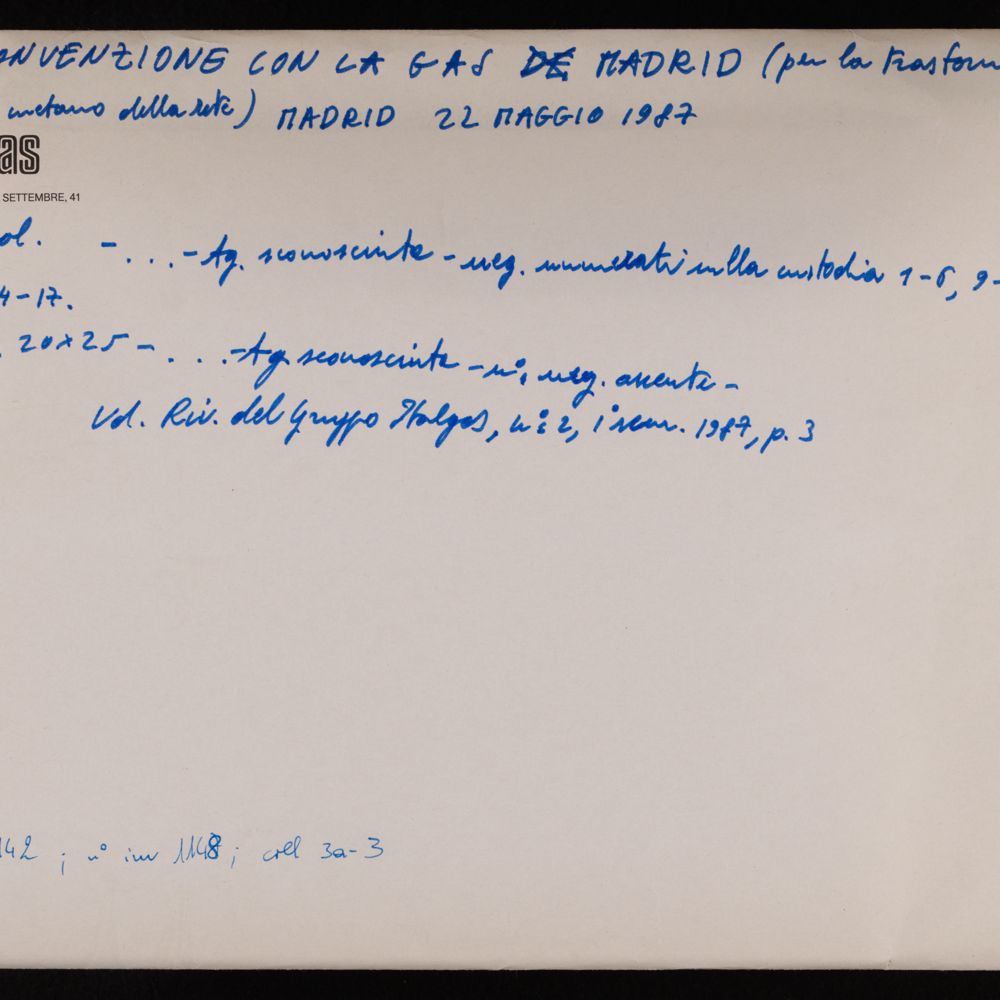 ONVENZIONE CON LA GAS DE MADRID (per la trasform
metano della rete) MADRID 22 MAGGIO 1987
as
SETTEMBRE, 41
ol. - ... - Ag. sconosciuta - neg. numerati sulla custodia 1-6, 9-
4-17.
20x25 - ... - Ag. sconosciuta - n°. neg. assente -
Vd. Riv. del Gruppo Italgas, n° 2, 1° sem. 1987, p. 3
142 ; n° inv 1148 ; coll 3a-3